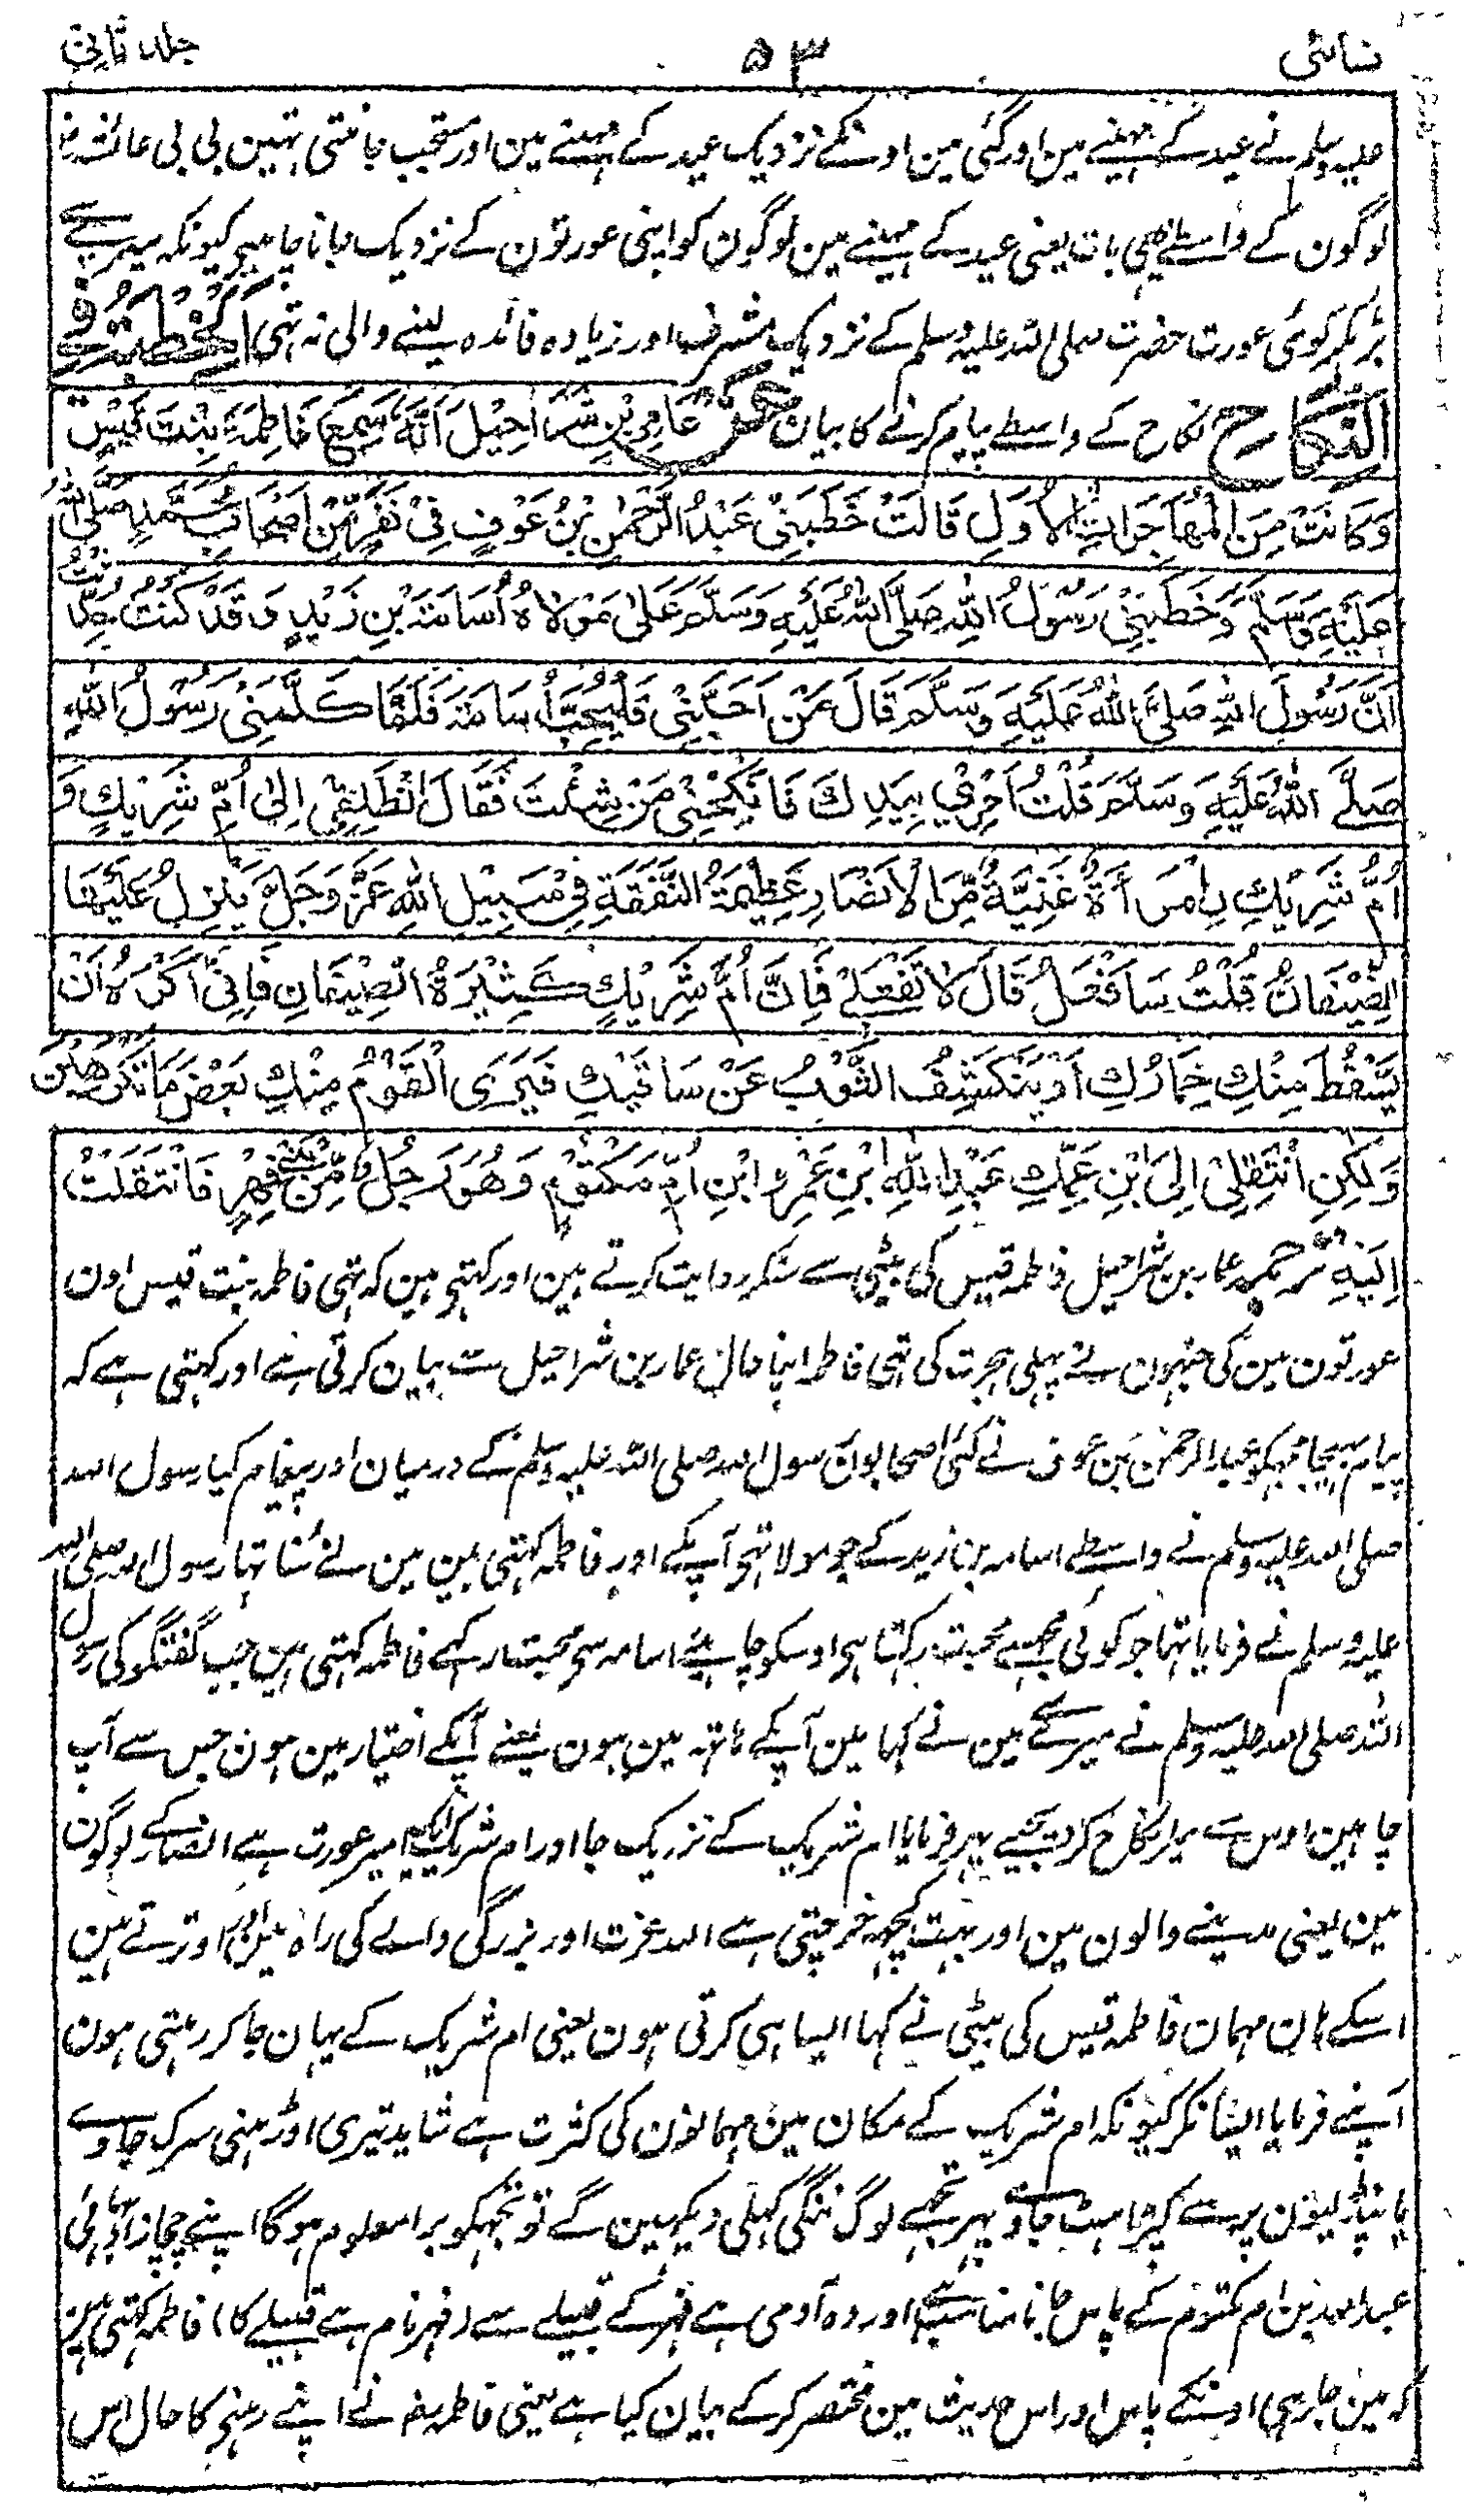 نسائی ۵۳ جلد ثانی
علیہ وسلم نے عید کے مہینے مین اور گئی مین اونکے نزدیک عید کے مہینے مین اور مستحب جانتی تہین بی بی عائشہ رض
لوگون کے واسطے یہی بات یعنی عید کے مہینے مین لوگون کو اپنی عورتون کے نزدیک جانا چاہیے کیونکہ میرسے
بڑہکر کوئی عورت حضرت صلی اللہ علیہ وسلم کے نزدیک مشرف اور زیادہ فائدہ لینے والی نہ تہی اَلْخُطْبَةُ فِي
النِّكَاحِ نکاح کے واسطے پیام کرنے کا بیان عَنْ عَامِرِ بْنِ شَرَاحِيْلَ اَنَّهٗ سَمِعَ فَاطِمَةَ بِنْتَ قَيْسٍ
وَكَانَتْ مِنَ الْمُهَاجِرَاتِ الْاُوَلِ قَالَتْ خَطَبَنِيْ عَبْدُ الرَّحْمٰنِ بْنُ عَوْفٍ فِيْ نَفَرٍ مِّنْ اَصْحَابِ مُحَمَّدٍ صَلَّى اللّٰهُ
عَلَيْهِ وَسَلَّمَ وَخَطَبَنِيْ رَسُوْلُ اللّٰهِ صَلَّى اللّٰهُ عَلَيْهِ وَسَلَّمَ عَلٰى مَوْلَاهُ اُسَامَةَ بْنِ زَيْدٍ وَقَدْ كُنْتُ حُدِّثْتُ
اَنَّ رَسُوْلَ اللّٰهِ صَلَّى اللّٰهُ عَلَيْهِ وَسَلَّمَ قَالَ مَنْ اَحَبَّنِيْ فَلْيُحِبَّ اُسَامَةَ فَلَمَّا كَلَّمَنِيْ رَسُوْلُ اللّٰهِ
صَلَّى اللّٰهُ عَلَيْهِ وَسَلَّمَ قُلْتُ اَمْرِيْ بِيَدِكَ فَانْكِحْنِيْ مَنْ شِئْتَ فَقَالَ انْطَلِقِيْ اِلٰى اُمِّ شَرِيْكٍ وَ
اُمُّ شَرِيْكٍ اِمْرَأَةٌ غَنِيَّةٌ مِّنَ الْاَنْصَارِ عَظِيْمَةُ النَّفَقَةِ فِيْ سَبِيْلِ اللّٰهِ عَزَّ وَجَلَّ يَنْزِلُ عَلَيْهَا
الضِّيْفَانُ قُلْتُ سَاَفْعَلُ قَالَ لَا تَفْعَلِيْ فَاِنَّ اُمَّ شَرِيْكٍ كَثِيْرَةُ الضِّيْفَانِ فَاِنِّيْ اَكْرَهُ اَنْ
يَّسْقُطَ مِنْكِ خِمَارُكِ اَوْ يَنْكَشِفُ الثَّوْبُ عَنْ سَاقَيْكِ فَيَرَى الْقَوْمُ مِنْكِ بَعْضَ مَا تَكْرَهِيْنَ
وَلٰكِنِ انْتَقِلِيْ اِلَى ابْنِ عَمِّكِ عَبْدِ اللّٰهِ ابْنِ عَمْرٍو ابْنِ اُمِّ مَكْتُوْمٍ وَهُوَ رَجُلٌ مِّنْ بَنِيْ فِهْرٍ فَانْتَقَلْتُ
اِلَيْهِ ترجمہ عمار بن شراحیل فاطمہ قیس کی بیٹی سے سنکر روایت کرتے ہین اور کہتی ہین کہ تہی فاطمہ بنت قیس اون
عورتون مین کی جنہون نے پہلی ہجرت کی تہی فاطمہ اپنا حال عمار بن شراحیل سے بیان کرتی ہے اور کہتی ہے کہ
پیام بہیجا مجہکو عبدالرحمن بن عوف نے کئی اصحابون رسول اللہ صلی اللہ علیہ وسلم کے درمیان اور پیغام کیا رسول اللہ
صلی اللہ علیہ وسلم نے واسطے اسامہ بن زید کے جو مولا تہی آپکے اور فاطمہ کہتی ہین مین نے سنا تہا رسول اللہ صلی اللہ
علیہ وسلم نے فرمایا تہا جو کوئی مجہسے محبت رکہتا ہی اوسکو چاہیئے اسامہ سی محبت رکہے فاطمہ کہتی ہین جب گفتگو کی رسول
اللہ صلی اللہ علیہ وسلم نے میرسے مین نے کہا مین آپکے ہاتہہ مین ہون یعنے آپکے اختیار مین ہون جس سے آپ
چاہین اوس سے میرا نکاح کر دیجیے پہر فرمایا ام شریک کے نزدیک جا اور ام شریک ایک امیر عورت ہے انصار کے لوگون
مین یعنی مدینے والون مین اور بہت کچہہ خرچتی ہے اللہ عزت اور بزرگی والے کی راہ مین اور اوترتے ہین
اسکے ہان مہمان فاطمہ قیس کی بیٹی نے کہا ایسا ہی کرتی ہون یعنی ام شریک کے یہان جاکر رہتی ہون
آپنے فرمایا ایسا نکر کیونکہ ام شریک کے مکان مین مہمانون کی کثرت ہے شاید تیری اوڑہنی سرک جاوے
یا پنڈلیون پر سے کپڑا ہٹ جاوے پہر تجھے لوگ ننگی کہلی دیکہین گے تو تجہکو برا معلوم ہوگا اپنے چچازاد بہائی
عبداللہ بن ام مکتوم کے پاس جانا مناسب ہے اور وہ آدمی ہے فہر کے قبیلے سے (فہر نام ہے قبیلے کا) فاطمہ کہتی ہین
کہ مین جا رہی اونکے پاس اور اس حدیث مین مختصر کرکے بیان کیا ہے یعنی فاطمہ رض نے اپنے رہنے کا حال اس